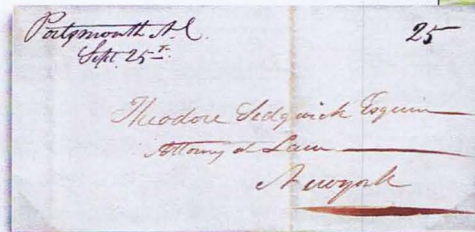 Portsmouth N.C. 25
Sept. 25th.
Theodore Sedgwick Esquire
Attorney at Law
Newyork